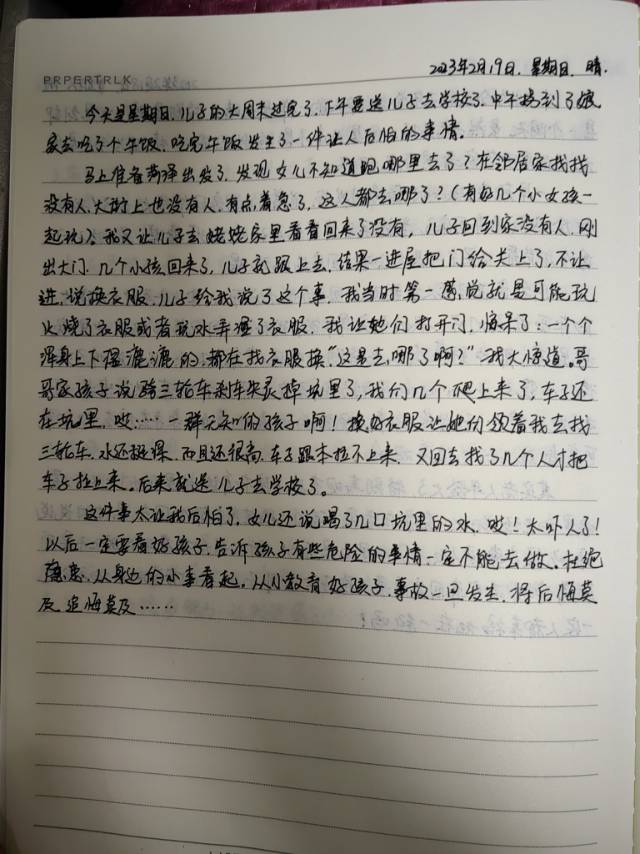 PRPERTRLK
2023年2月19日. 星期日. 晴.
今天是星期日.儿子的大周末过完了.下午要送儿子去学校了.中午接到了娘
家去吃了个午饭.吃完午饭发生了一件让人后怕的事情。
马上准备菏泽出发了.发现女儿不知道跑哪里去了？在邻居家找找
没有人.大街上也没有人.有点着急了.这人都去哪了？(有好几个小女孩一
起玩).我又让儿子去姥姥家里看看回来了没有,儿子回到家没有人.刚
出大门.几个小孩回来了.儿子就跟上去.结果一进屋把门给关上了,不让
进.说换衣服.儿子给我说了这个事.我当时第一感觉就是可能玩
火烧了衣服或者玩水弄湿了衣服.我让她们打开门.惊呆了:一个个
浑身上下湿漉漉的.都在找衣服换."这是去哪了啊?"我大惊道。哥
哥家孩子说骑三轮车刹车失灵掉坑里了,我们几个爬上来了,车子还
在坑里.哎……一群无知的孩子啊！换好衣服让她们领着我去找
三轮车.水还挺深.而且还很高.车子跟本拉不上来.又回去找了几个人才把
车子拉上来。后来就送儿子去学校了。
这件事太让我后怕了.女儿还说喝了几口坑里的水.哎！太吓人了！
以后一定要看好孩子.告诉孩子有些危险的事情一定不能去做.杜绝
隐患.从身边的小事看起。从小教育好孩子.事故一旦发生.将后悔莫
及.追悔莫及……